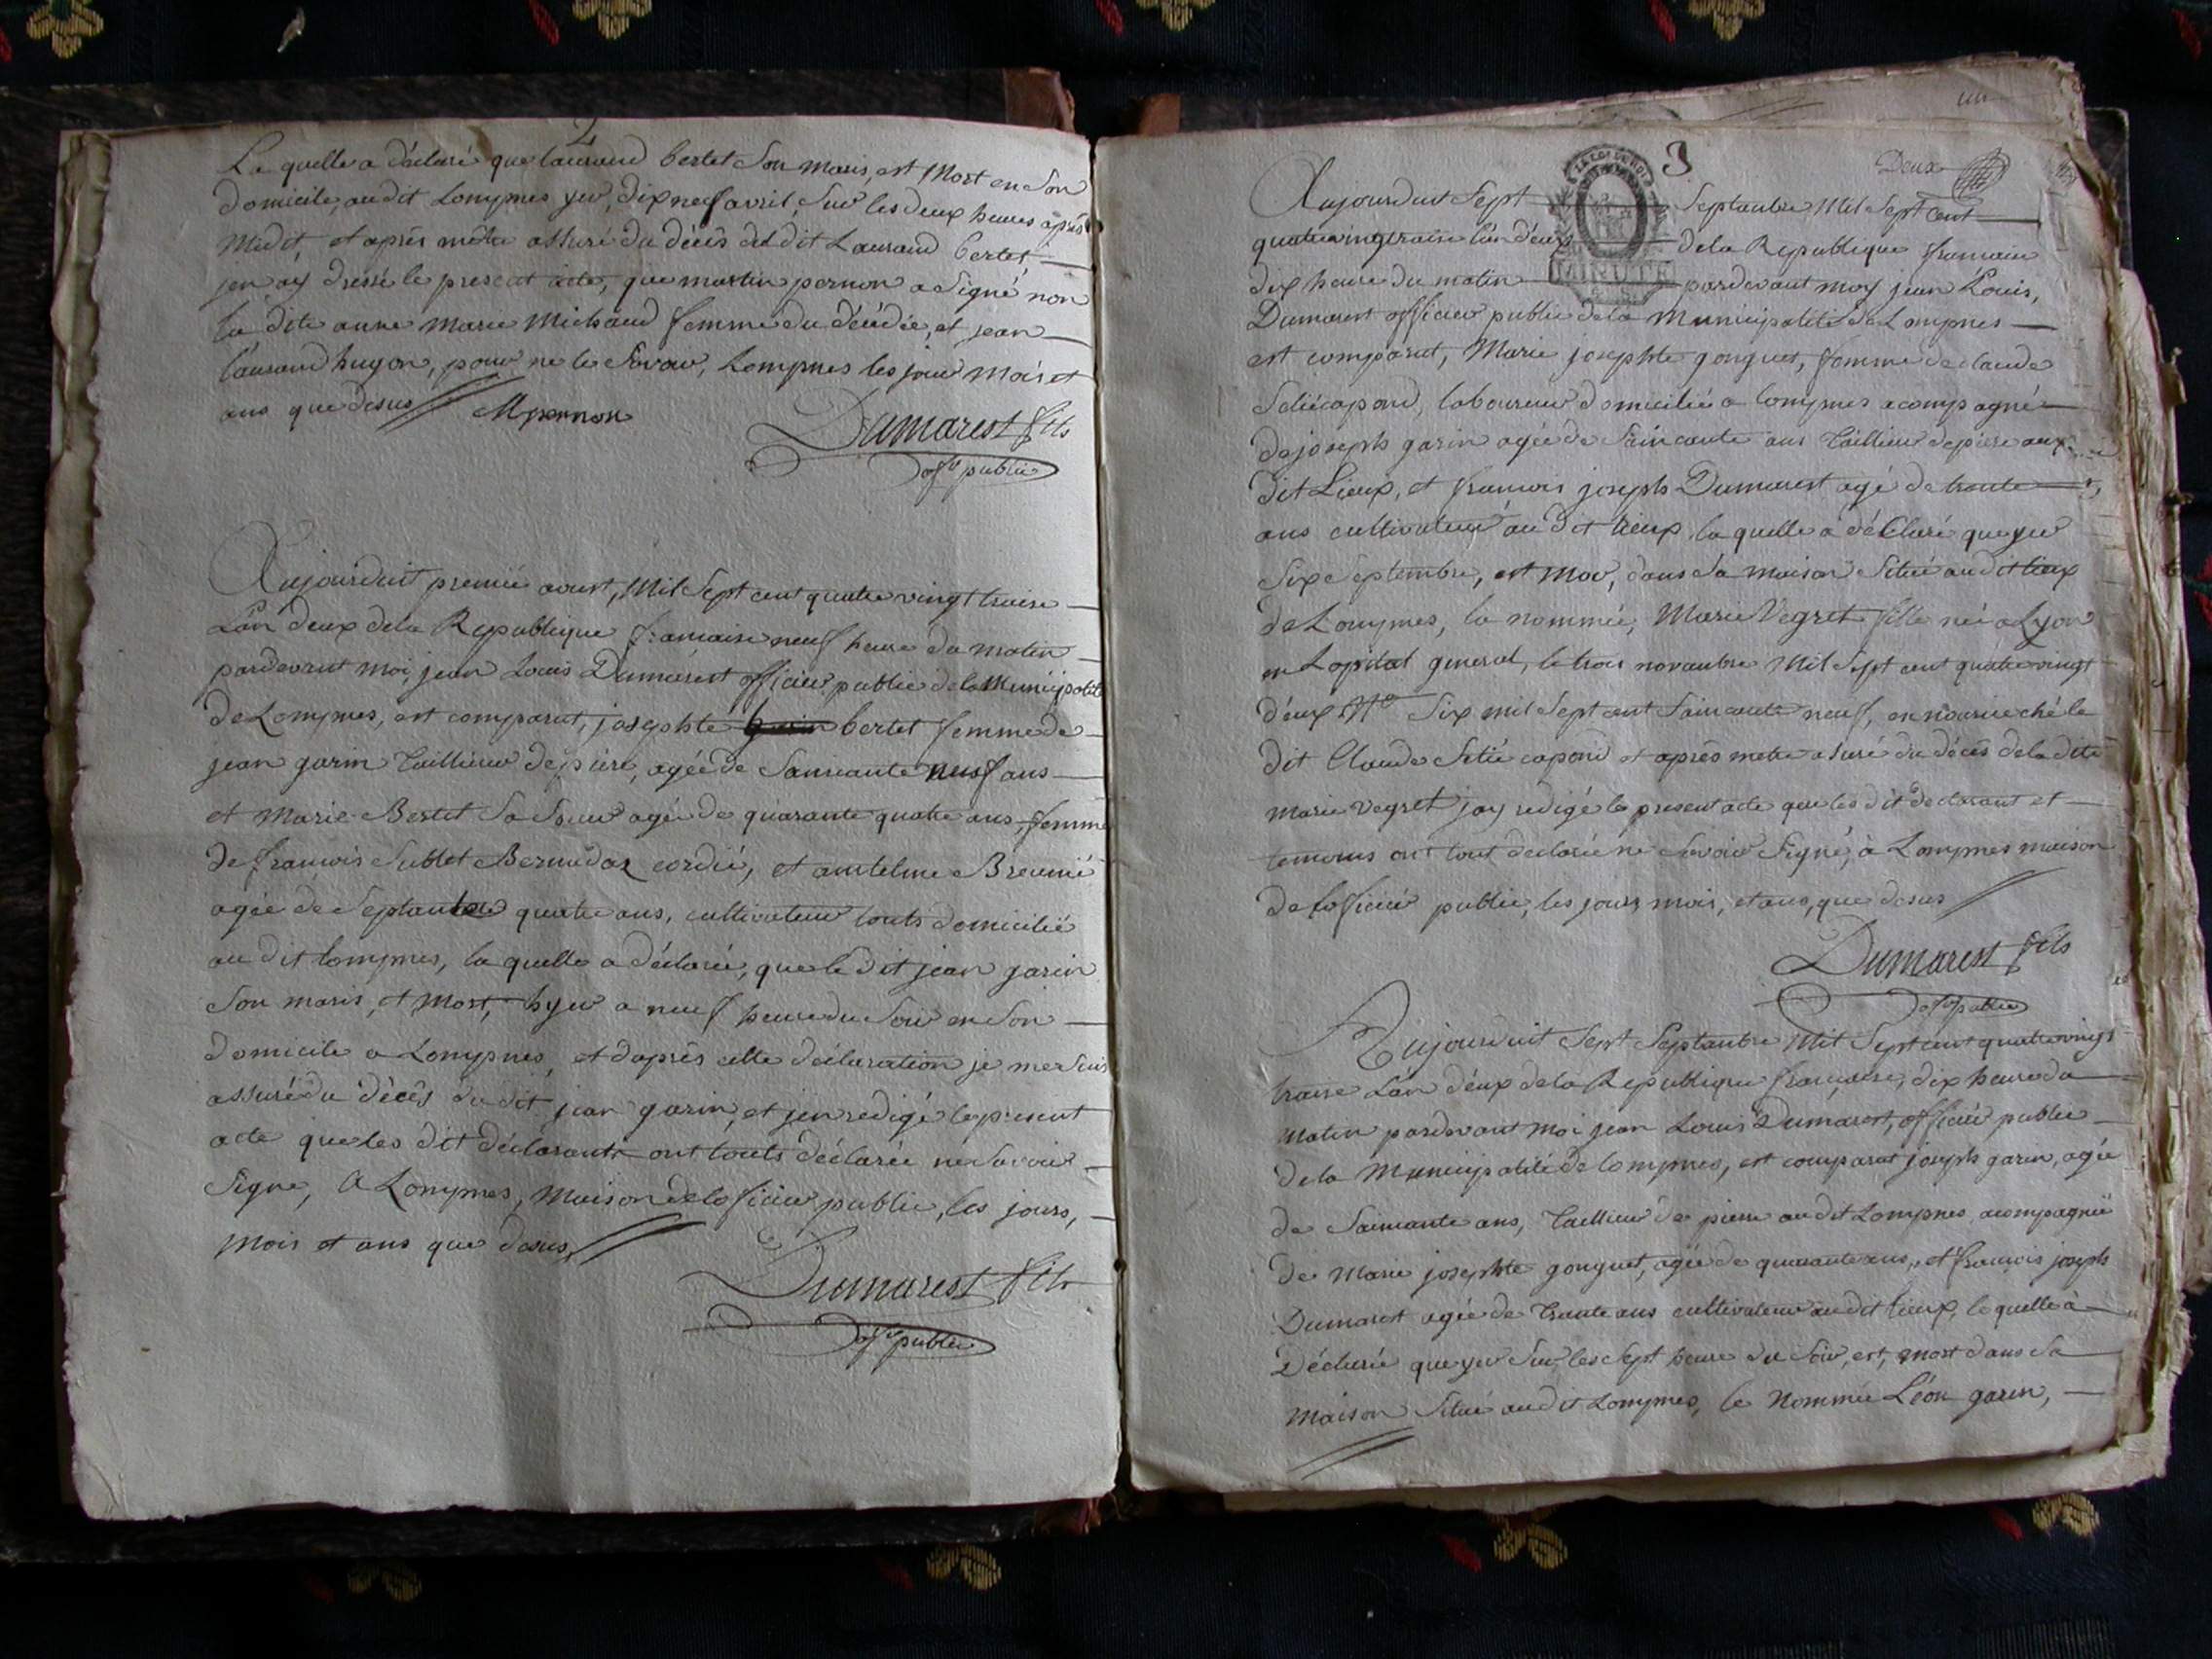 2
La quelle a déclaré que laurand bertet Son maris, est Mort en Son
domicile, au dit Lompnes yer, dix neuf avril, Sur les deux heures après
Medit, et après mêtre assuré du décès du dit Laurand bertet,
jen ay dressé le present acte, que martin pernon a Signé non
la dite anne Marie Michaud femme du décédée, et jean
laurand hugon, pour ne le Savoir, Lompnes les jour mois et
ans que desus Mpernon
Dumarest fils
off.er public
Aujourduit premié aoust, Mil Sept cent quatre vingt traise
Lan deux de la Republique francaise neuf heure du matin
pardevant moi jean Louis Dumarest officier public de la Municipalité
de Lompnes, est comparut, josephte bertet femme de
jean garin Tailleur de piere, agée de Saincante neuf ans
et Marie Bertet Sa Sœur agée de quarante quatre ans, femme
de francois Sublet Bermudaz cordié, et antelme Breunié
agée de Septante quatre ans, cultivateur touts domicilié
au dit lompnes, la quelle a déclarée, que le dit jean garin
Son maris, et Mort, hyer a neuf heure du Soir en Son
domicile a Lompnes, et daprès cette déclaration je me suis
assuré du décès du dit jean garin, et jen redigé le present
acte que les dit déclarants ont touts déclarée ne Savoir
Signe, A Lompnes, Maison de loficier public, les jours,
Mois et ans que desus
Dumarest fils
off.er public
3
Deux
LA LOI LE ROI
MINUTE
Aujourduit Sept Septanbre Mil Sept cent
quatrevingtraise lan deux de la Republique francaise
dix heure du matin pardevant moy jean Louis,
Dumarest officier public de la Municipalité de Lompnes
est comparut, Marie josephte gonguet, femme de claude
Setié capond, laboureur domicilié a lompnes acompagné
de joseph garin agée de Saincante ans Taillieur de piere aux
dit Lieux, et francois joseph Dumarest agé de trante
ans cultivateur au dit lieux la quelle a déClaré que yer
Six Septembre, est Mor, dans Sa maison Situé au dit lieux
de Lompnes, la nommée, Marie Vegret fille née a Lyon
en Lopital general, le trois novanbre Mil Sept cent quatre vingt
deux N.o Six mil Sept cent Saincante neuf, en nourice ché le
dit Claude Setié capond et après metre asuré du décès de la dite
Marie vegret jay redigé le present acte que les dit declarant et
temoins ont tout declaré ne Savoir Signé, a Lompnes maison
de loficié public, les jours mois, et ans, que desus
Dumarest fils
off.er public
Aujourduit Sept Septanbre Mil Sept cent quatrevingt
traise Lan deux de la Republique francaise, dix heure du
Matin pardevant Moi jean Louis Dumarest, officié public
de la Municipalité de lompnes, est comparut joseph garin, agée
de Saincante ans, Taillieur de pierre au dit Lompnes acompagnié
de Marie josephte gonguet, agée de quarante ans, et francois joseph
Dumarest agée de Trante ans cultivateur au dit lieux, le quelle à
Déclarée que yer Sur les Sept heure du Soir, est, mort dans Sa
Maison Situé au dit Lompnes, le Nommée Léon garin,